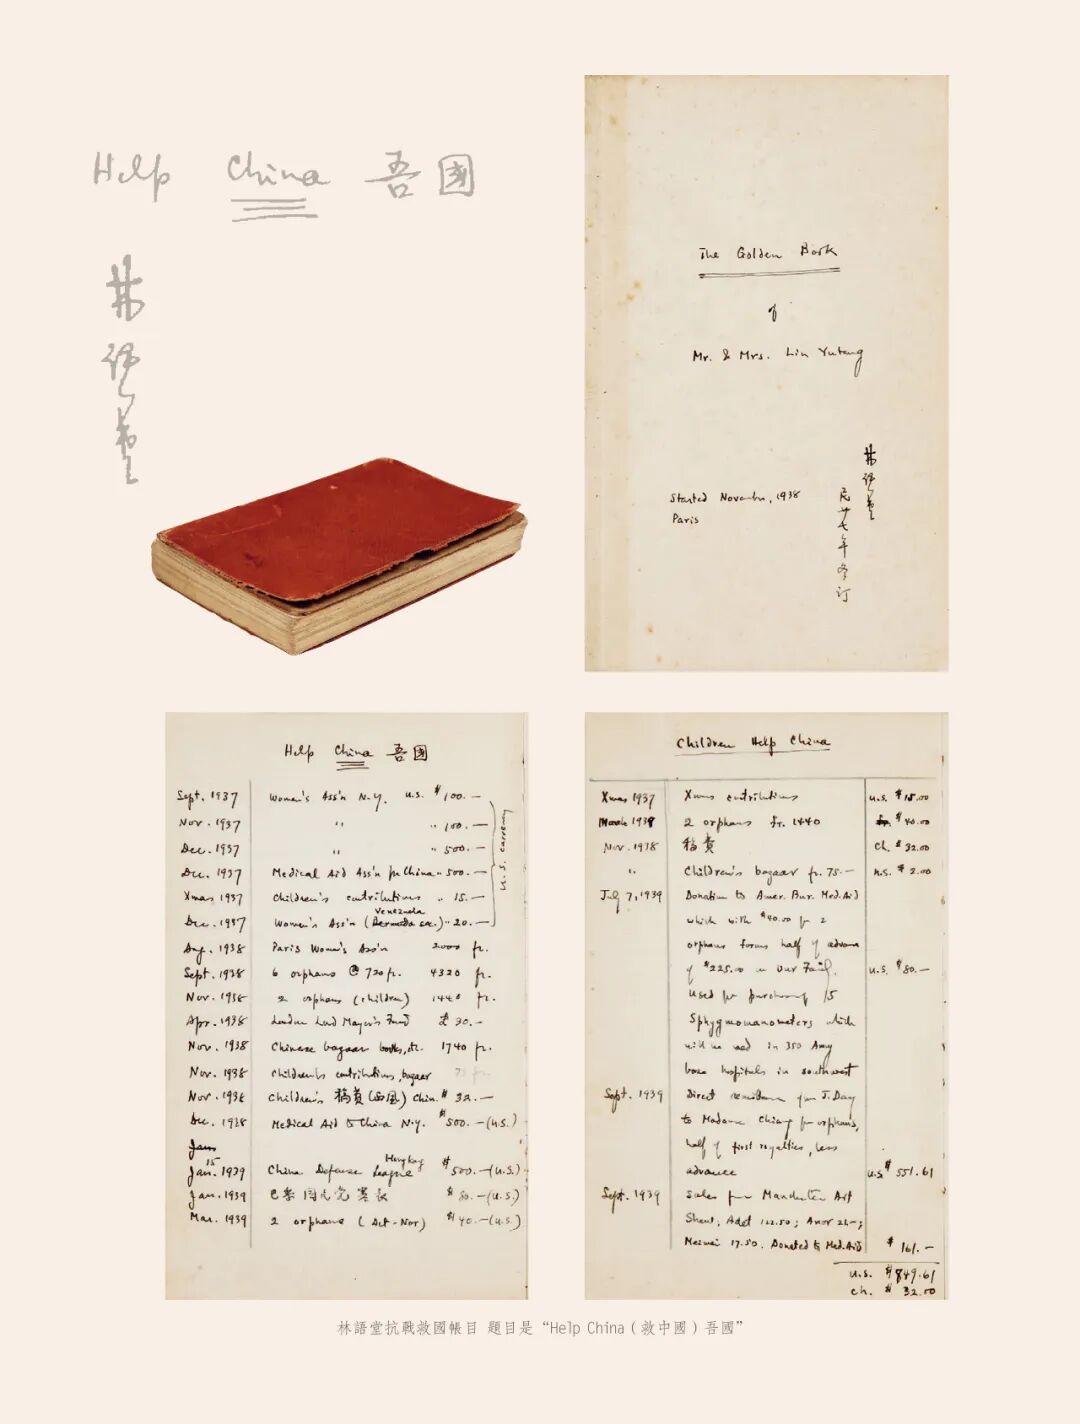 Help China 吾國
林語堂
The Golden Book
of
Mr. & Mrs. Lin Yutang
林語堂
民廿七年冬訂
Started November, 1938
Paris
Help China 吾國
Sept. 1937 Women's Ass'n N.Y. U.S. $100.—
Nov. 1937 " " 100.—
Dec. 1937 " " 500.—
Dec. 1937 Medical Aid Ass'n for China " 500.—
Xmas 1937 Children's contributions " 15.—
Venezuela
Dec. 1937 Women's Ass'n (Bermuda) " 20.—
U.S. currency
Aug. 1938 Paris Women's Ass'n 2000 fr.
Sept. 1938 6 orphans @ 720 fr. 4320 fr.
Nov. 1938 2 orphans (children) 1440 fr.
Apr. 1938 London Lord Mayor's Fund £ 30.—
Nov. 1938 Chinese bagaar books, etc. 1740 fr.
Nov. 1938 Children's contributions, bagaar 75 fr.
Nov. 1938 Children's 稿費(西風) Chin. $ 32.—
Dec. 1938 Medical Aid to China N.Y. $500.—(U.S.)
Jan
Hongkong
Jan. 15 1939 China Defense League $500.—(U.S.)
Jan. 1939 巴黎國民党 $ 80.—(U.S.)
Mar. 1939 2 orphans (Oct-Nov) $40.—(U.S.)
Children Help China
Xmas 1937 Xmas contributions U.S. $15.00
March 1938 2 orphans fr. 1440 $40.00
Nov. 1938 稿費 Ch. $32.00
" Children's bagaar fr. 75.— U.S. $2.00
July 7, 1939 Donation to Amer. Bur. Med. Aid
which with $40.00 for 2
orphans forms half of advance
of $225.00 on Our Family. U.S. $80.—
Used for purchasing 15
Sphygmomanometers which
will be used in 350 Army
base hospitals in southwest
Sept. 1939 Direct remittance from J. Day
to Madame Chiang for orphans,
half of first royalties, less
advance U.S. $551.61
Sept. 1939 Sales from Manhattan Art
Adet 122.50; Anor 21—;
Meimei 17.50. Donated to Med. Aid $161.—
U.S. $849.61
Ch. $32.00
林語堂抗戰救國帳目 題目是“Help China(救中國)吾國”